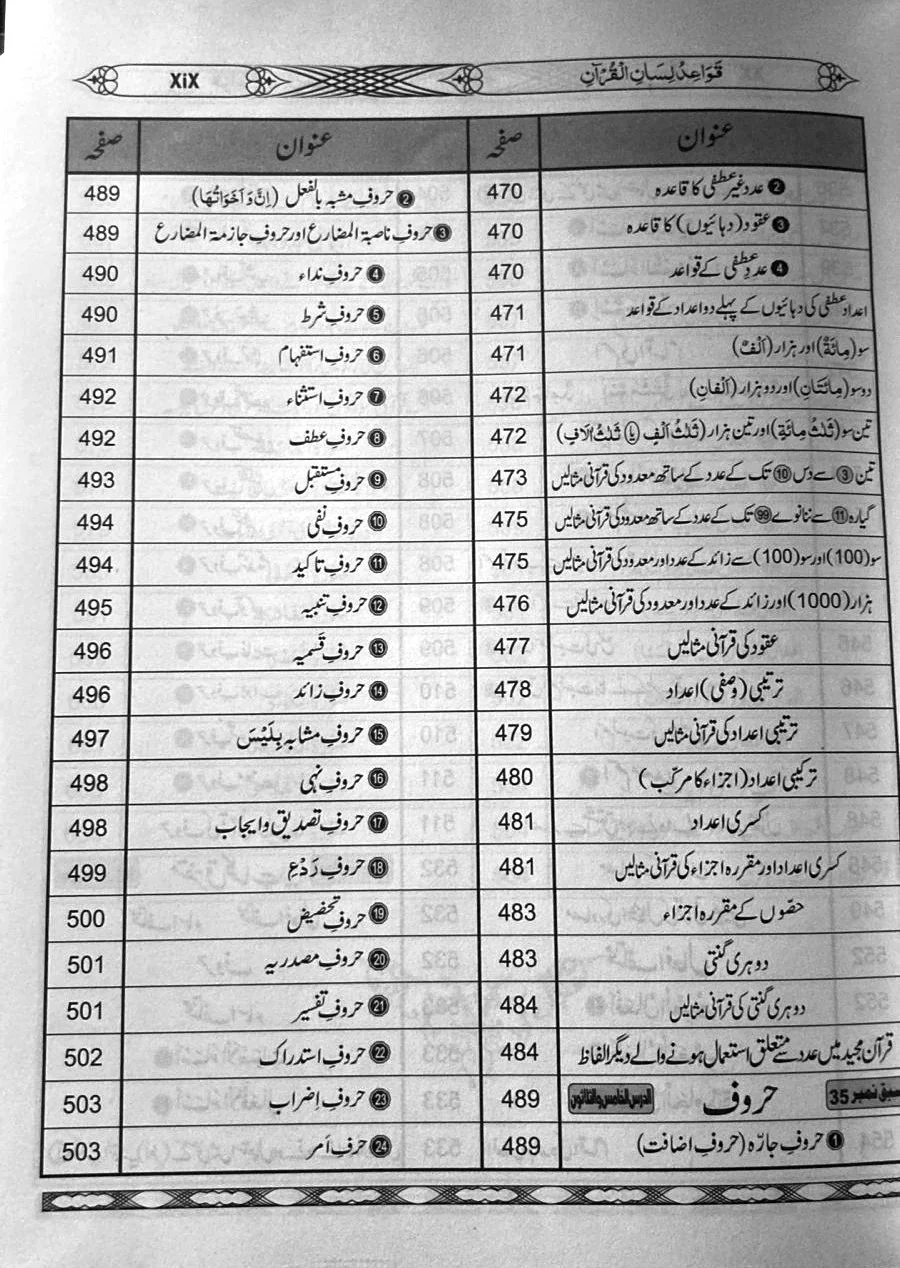 قَوَاعِدُ لِسَانِ الْقُرْآنِ XiX
عنوان صفحہ
❷ عدد غیر عطفی کا قاعدہ 470
❸ عقود (دہائیوں) کا قاعدہ 470
❹ عددِ عطفی کے قواعد 470
اعداد عطفی کی دہائیوں کے پہلے دو اعداد کے قواعد 471
سو (مِائَةٌ) اور ہزار (اَلْفٌ) 471
دوسو (مِائَتَانِ) اور دو ہزار (اَلْفَانِ) 472
تین سو (ثَلٰثُ مِائَةٍ) اور تین ہزار (ثَلٰثُ اَلْفٍ یا ثَلٰثُ اٰلَافٍ) 472
تین ③ سے دس ⑩ تک کے عدد کے ساتھ معدود کی قرآنی مثالیں 473
گیارہ ⑪ سے ننانوے 99 تک کے عدد کے ساتھ معدود کی قرآنی مثالیں 475
سو (100) اور سو (100) سے زائد کے عدد اور معدود کی قرآنی مثالیں 475
ہزار (1000) اور زائد کے عدد اور معدود کی قرآنی مثالیں 476
عقود کی قرآنی مثالیں 477
ترتیبی (وصفی) اعداد 478
ترتیبی اعداد کی قرآنی مثالیں 479
ترکیبی اعداد (اجزاء کا مرکّب) 480
کسری اعداد 481
کسری اعداد اور مقررہ اجزاء کی قرآنی مثالیں 481
حصّوں کے مقررہ اجزاء 483
دوہری گنتی 483
دوہری گنتی کی قرآنی مثالیں 484
قرآن مجید میں عدد سے متعلق استعمال ہونے والے دیگر الفاظ 484
سبق نمبر 35 حروف الدرس الخامس والثلاثون 489
❶ حروفِ جارّہ (حروفِ اضافت) 489
عنوان صفحہ
❷ حروفِ مشبہ بالفعل (اِنَّ وَ اَخَوَاتُهَا) 489
❸ حروفِ ناصبۃ المضارع اور حروفِ جازمۃ المضارع 489
❹ حروفِ نداء 490
❺ حروفِ شرط 490
❻ حروفِ استفہام 491
❼ حروفِ استثناء 492
❽ حروفِ عطف 492
❾ حروفِ مستقبل 493
❿ حروفِ نفی 494
⓫ حروفِ تاکید 494
⓬ حروفِ تنبیہ 495
⓭ حروفِ قَسَمیہ 496
⓮ حروفِ زائد 496
⓯ حروفِ مشابہ بِلَيْسَ 497
⓰ حروفِ نہی 498
⓱ حروفِ تصدیق و ایجاب 498
⓲ حروفِ رَدْعِ 499
⓳ حروفِ تحضیض 500
⓴ حروفِ مصدریہ 501
㉑ حروفِ تفسیر 501
㉒ حروفِ استدراک 502
㉓ حروفِ اِضراب 503
㉔ حرفِ اَمر 503